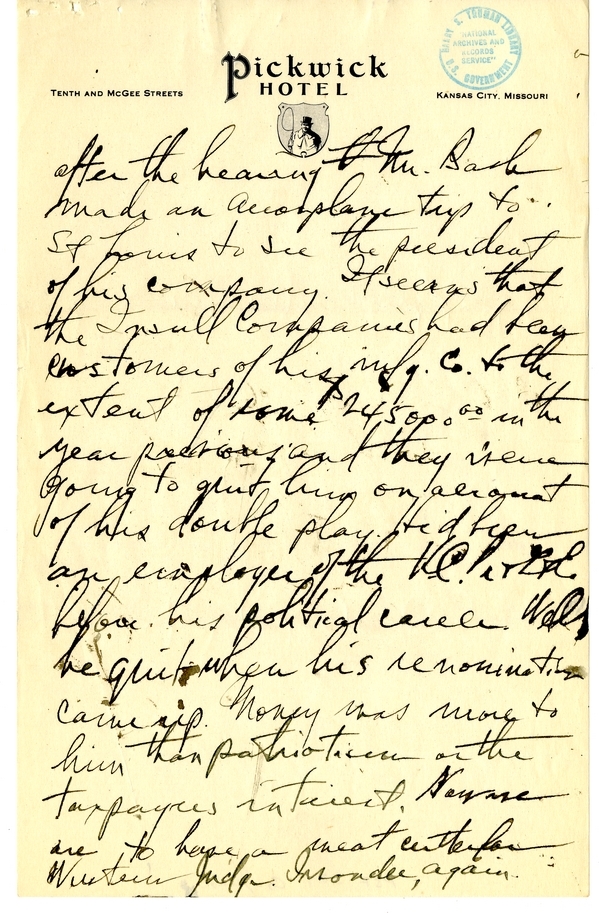 Pickwick
HOTEL
TENTH AND MCGEE STREETS
KANSAS CITY, MISSOURI
HARRY S. TRUMAN LIBRARY
"NATIONAL
ARCHIVES AND
RECORDS
SERVICE"
U.S. GOVERNMENT
after the hearing Mr. Bash
made an aeroplane trip to
St Louis to see the president
of his company. It seems that
the Insull Companies had been
customers of his mfg. Co. to the
extent of some $245000 00 in the
year previous and they were
going to quit him on account
of his double play. He'd been
an employee of the K.C. P. & L.
before his political career. Well
he quit when his renomination
came up. Money was more to
him than patriotism or the
taxpayers interest. Now we
are to have a meat cutter for
Western Judge. I wonder, again.